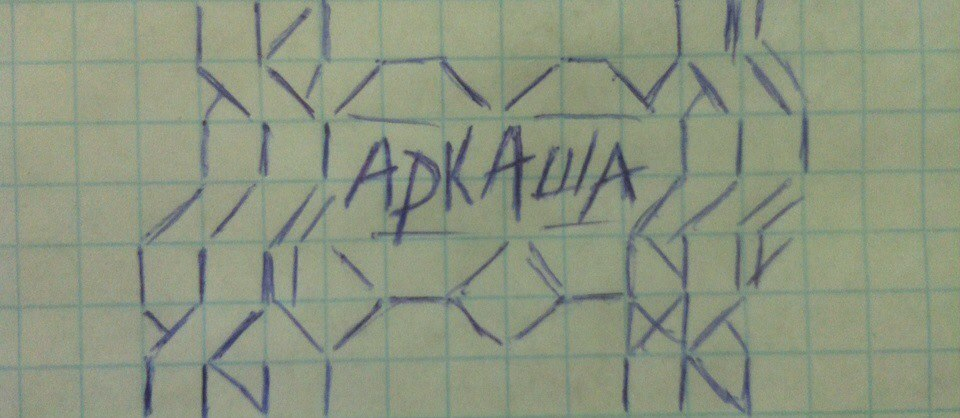 АРКАША